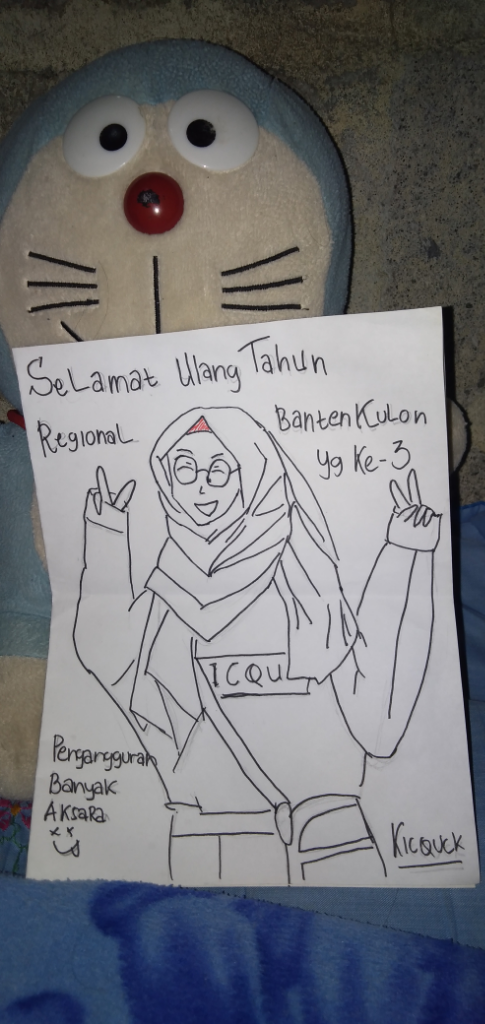 SeLamat Ulang Tahun
RegionaL
Banten Kulon
yg Ke-3
ICQU
Pengangguran
Banyak
AKsara
Kicquck